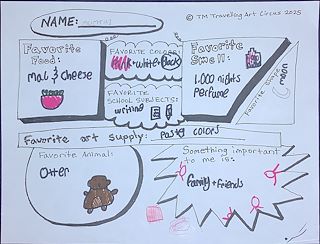 © TM Traveling Art Circus 2025
NAME:
Favorite
Food:
mac & cheese
FAVORITE COLOR:
Pink + white + Black
FAVORITE
SCHOOL SUBJECTS:
writing
Favorite
Smell:
1,000 nights
perfume
Favorite shape
moon
Favorite art supply: Pastel colors
Favorite Animal:
Otter
Something important
to me is:
family + friends